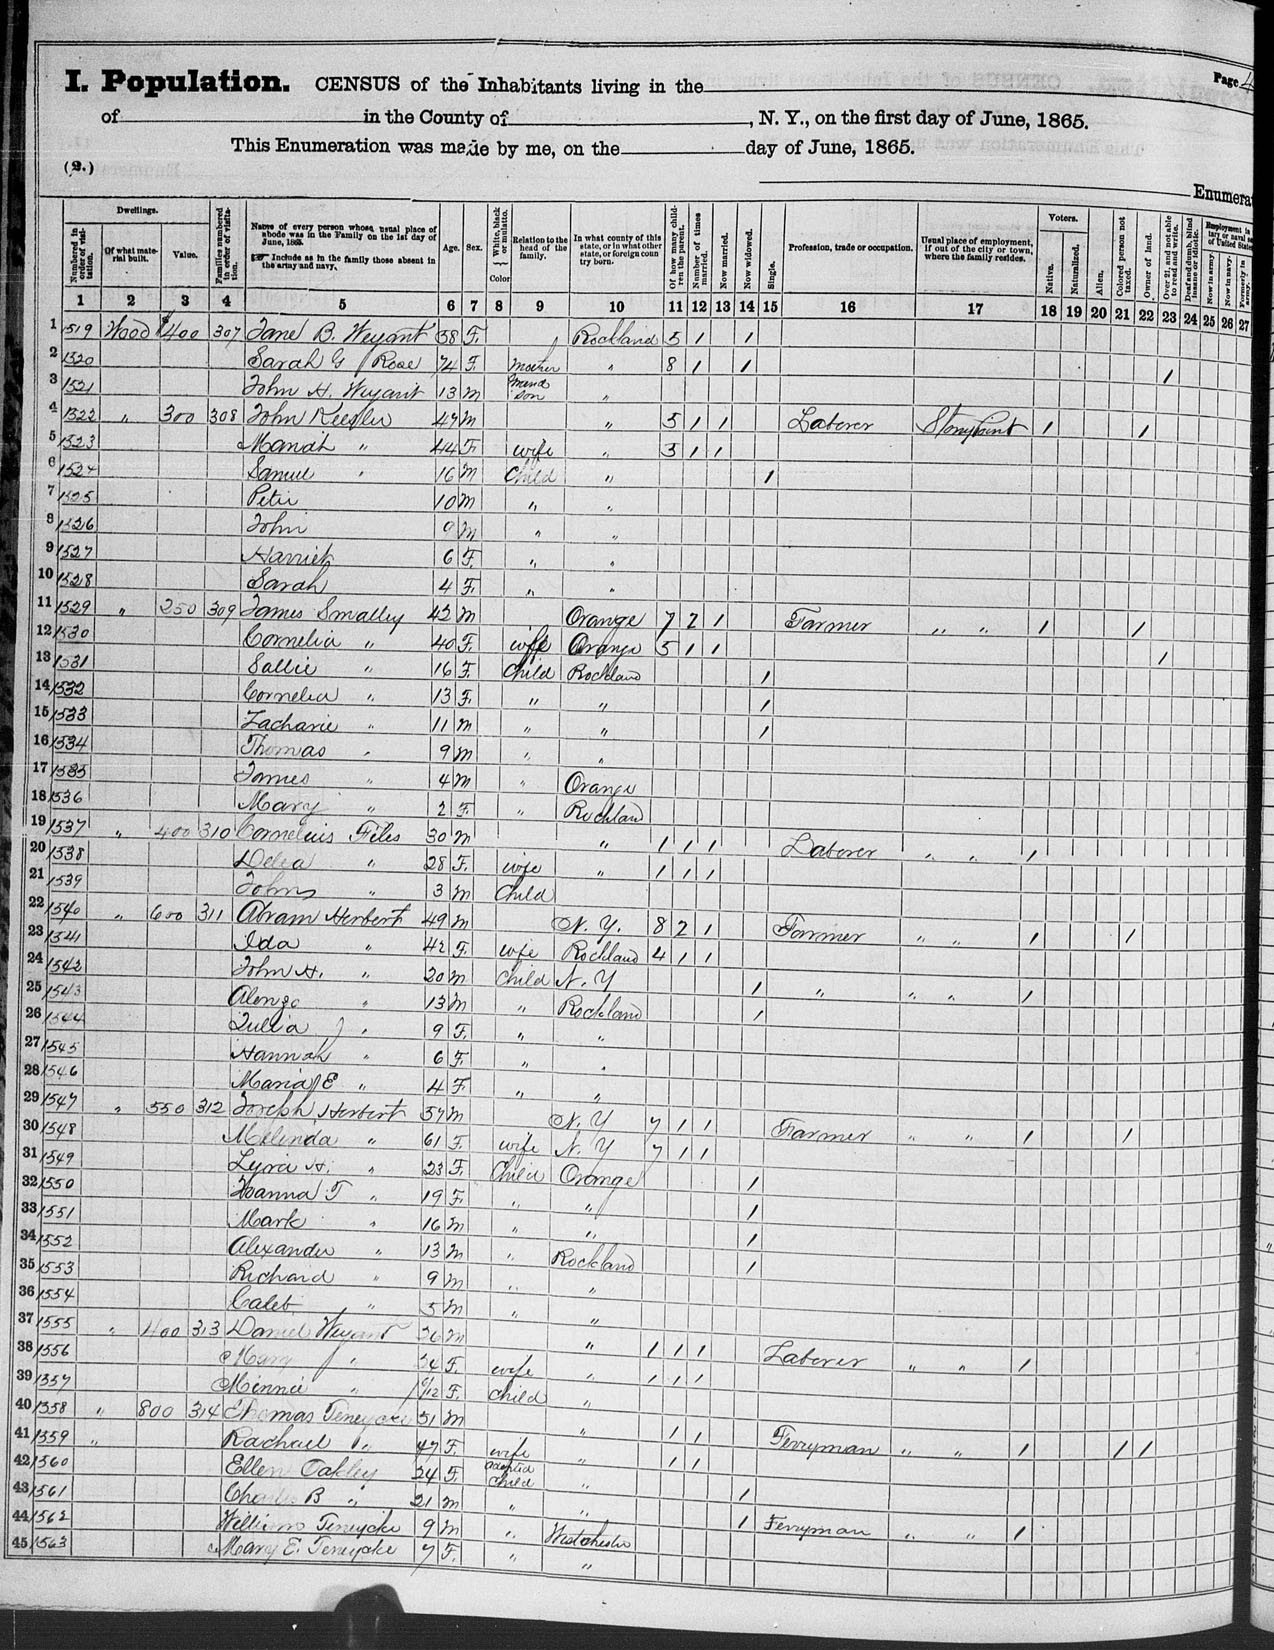 Page 4
I. Population. CENSUS of the Inhabitants living in the
of in the County of , N. Y., on the first day of June, 1865.
This Enumeration was made by me, on the day of June, 1865.
(2.)
Enumerat
Dwellings.
Numbered in order of visitation.
Of what material built.
Value.
Families numbered in order of visitation.
Name of every person whose usual place of abode was in the Family on the 1st day of June, 1865.
Include as in the family those absent in the army and navy.
Age.
Sex.
White, black or mulatto.
Color
Relation to the head of the family.
In what county of this state, or in what other state, or foreign country born.
Of how many children the parent.
Number of times married.
Now married.
Now widowed.
Single.
Profession, trade or occupation.
Usual place of employment, if out of the city or town, where the family resides.
Voters.
Native.
Naturalized.
Alien.
Colored person not taxed.
Owner of land.
Over 21, and not able to read and write.
Deaf and dumb, blind insane or idiotic.
Employment in military or naval se of United States
Now in army.
Now in navy.
Formerly in army.
1 2 3 4 5 6 7 8 9 10 11 12 13 14 15 16 17 18 19 20 21 22 23 24 25 26 27
1 1519 Wood $400 307 Jane B. Weyant 58 F. Rockland 5 1 1
2 1520 Sarah G Rose 74 F. Mother " 8 1 1 1
3 1521 John H. Weyant 13 M Grand son "
4 1522 " 300 308 John Keesler 47 M " 5 1 1 Laborer Stonypoint 1 1
5 1523 Mariah " 44 F. wife " 3 1 1
6 1524 Samuel " 16 M Child " 1
7 1525 Peter 10 M " "
8 1526 John 9 M " "
9 1527 Harriet 6 F. " "
10 1528 Sarah 4 F. " "
11 1529 " 250 309 James Smalley 42 M Orange 7 2 1 Farmer " " 1 1
12 1530 Cornelia " 40 F. wife Orange 5 1 1 1
13 1531 Sallie " 16 F. Child Rockland 1
14 1532 Cornelia " 13 F. " " 1
15 1533 Zacharie " 11 M " " 1
16 1534 Thomas " 9 M " "
17 1535 James " 4 M " Orange
18 1536 Mary " 2 F. " Rockland
19 1537 " 400 310 Cornelius Files 30 M " 1 1 1 Laborer " " 1
20 1538 Delia " 28 F. wife " 1 1 1
21 1539 John " 3 M Child
22 1540 " 600 311 Abram Herbert 49 M N. Y. 8 2 1 Farmer " " 1 1
23 1541 Ida " 42 F. wife Rockland 4 1 1
24 1542 John H. " 20 M Child N. Y 1 " " " 1
25 1543 Alonzo " 13 M " Rockland 1
26 1544 Julia " 9 F. " "
27 1545 Hannah " 6 F. " "
28 1546 Maria E " 4 F " "
29 1547 " 550 312 Joseph Herbert 57 M N. Y 7 1 1 Farmer " " 1 1
30 1548 Melinda " 61 F. wife N. Y 7 1 1
31 1549 Lyra H. " 23 F. Child Orange 1
32 1550 Joanna T " 19 F. " " 1
33 1551 Mark " 16 M " " 1
34 1552 Alexander " 13 M " Rockland 1
35 1553 Richard " 9 M " "
36 1554 Caleb " 5 M " "
37 1555 " 400 313 Daniel Weyant 26 M " 1 1 1 Laborer " " 1
38 1556 Mary " 24 F. wife " 1 1 1
39 1357 Minnie " F. Child "
40 1358 " 800 314 Thomas Teneycke 51 M " 1 1 Ferryman " " 1 1 1
41 1359 " Rachael " 47 F. wife " 1 1
42 1360 Ellen Oakley 24 F. adopted Child " 1
43 1561 Charles B " 21 M " " 1 Ferryman " " 1
44 1562 William Teneycke 9 M " Westchester
45 1563 Mary E. Teneycke 7 F. " "